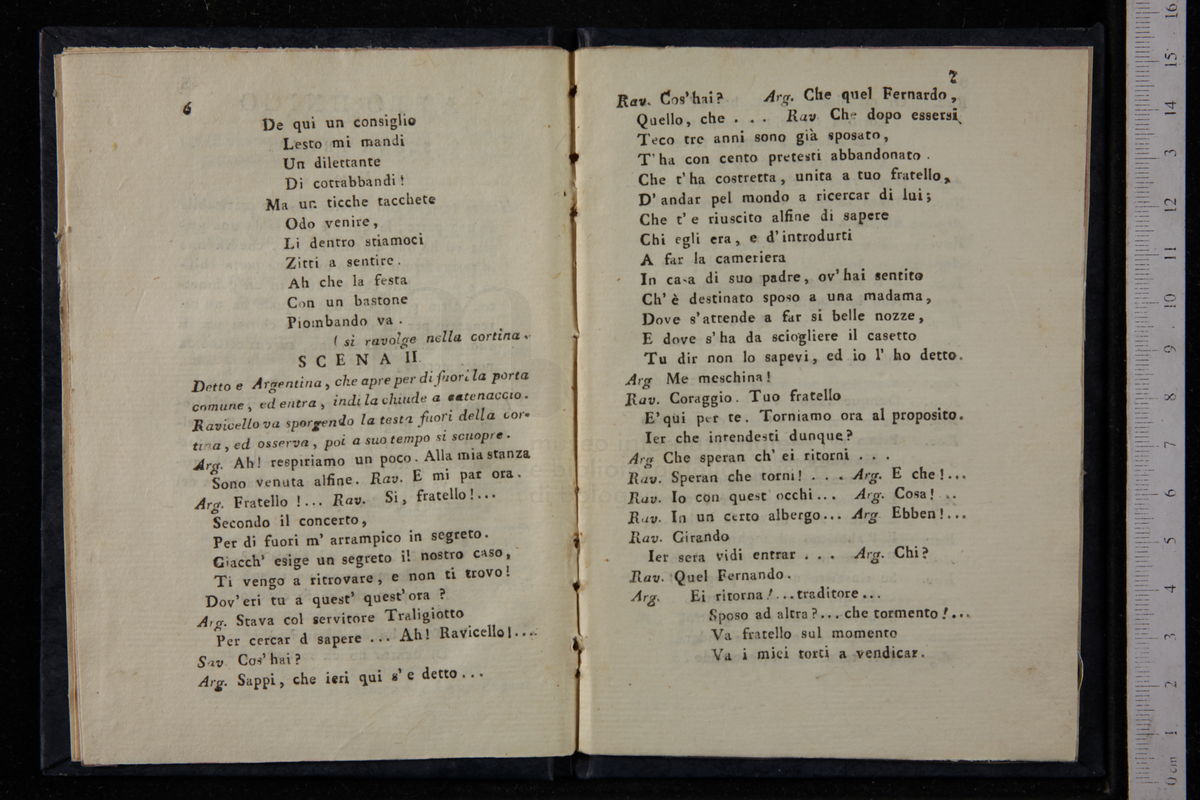 6
De qui un consiglio
Lesto mi mandi
Un dilettante
Di cotrabbandi!
Ma un ticche tacchete
Odo venire,
Li dentro stiamoci
Zitti a sentire.
Ah che la festa
Con un bastone
Piombando va.
( si ravolge nella cortina.
SCENA II.
Detto e Argentina, che apre per di fuori la porta
comune, ed entra, indi la chiude a catenaccio.
Ravicello va sporgendo la testa fuori della cor-
tina, ed osserva, poi a suo tempo si scuopre.
Arg. Ah! respiriamo un poco. Alla mia stanza
Sono venuta alfine. Rav. E mi par ora.
Arg. Fratello !... Rav. Si, fratello!...
Secondo il concerto,
Per di fuori m' arrampico in segreto.
Giacch' esige un segreto il nostro caso,
Ti vengo a ritrovare, e non ti trovo!
Dov'eri tu a quest' quest'ora ?
Arg. Stava col servitore Traligiotto
Per cercar d sapere ... Ah! Ravicello!...
Sav. Cos' hai?
Arg. Sappi, che ieri qui s' e detto...
7
Rav. Cos' hai? Arg. Che quel Fernardo,
Quello, che . . . Rav Che dopo essersi
Teco tre anni sono già sposato,
T' ha con cento pretesti abbandonato .
Che t' ha costretta, unita a tuo fratello,
D' andar pel mondo a ricercar di lui;
Che t' e riuscito alfine di sapere
Chi egli era, e d' introdurti
A far la cameriera
In casa di suo padre, ov' hai sentito
Ch' è destinato sposo a una madama,
Dove s' attende a far si belle nozze,
E dove s' ha da sciogliere il casetto
Tu dir non lo sapevi, ed io l' ho detto.
Arg Me meschina!
Rav. Coraggio. Tuo fratello
E' qui per te. Torniamo ora al proposito.
Ier che intendesti dunque?
Arg Che speran ch' ei ritorni . . .
Rav. Speran che torni! . . . Arg. E che!...
Rav. Io con quest' occhi... Arg. Cosa! ..
Rav. In un certo albergo... Arg Ebben!...
Rav. Girando
Ier sera vidi entrar . . . Arg. Chi?
Rav. Quel Fernando.
Arg. Ei ritorna!...traditore...
Sposo ad altra?...che tormento!...
Va fratello sul momento
Va i miei torti a vendicar.
0 cm 1 2 3 4 5 6 7 8 9 10 11 12 13 14 15 16